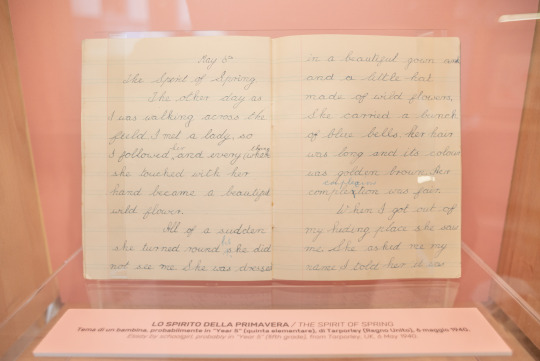 May 6th
The Spirit of Spring
The other day as
I was walking across the
field I met a lady, so
I followed her and every thing
she touched with her
hand became a beautiful
wild flower.
All of a sudden
she turned round she did
not see me. She was dressed
in a beautiful gown and
and a little hat
made of wild flowers,
She carried a bunch
of blue bells. Her hair
was long and its colour
was golden brown. Her
complexion was fair.
When I got out of
my hiding place she saw
me. She asked me my
name I told her it was
LO SPIRITO DELLA PRIMAVERA / THE SPIRIT OF SPRING
Tema di un bambina, probabilmente in "Year 5" (quinta elementare), di Tarporley (Regno Unito), 6 maggio 1940.
Essay by schoolgirl, probably in "Year 5" (fifth grade), from Tarporley, UK, 6 May 1940.